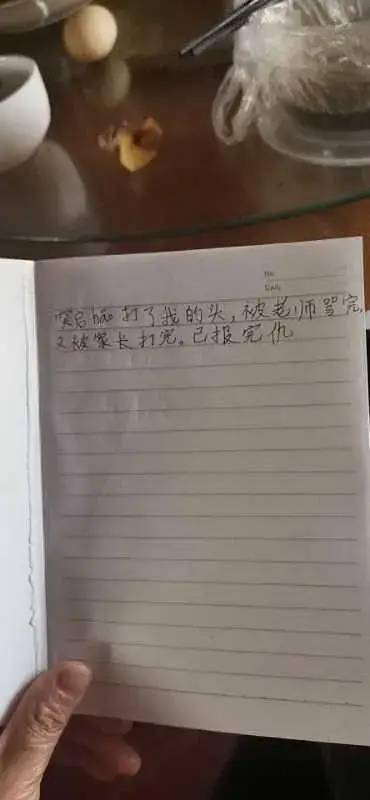 No
Date
启hao打了我的头，被老师骂完，
又被家长打完。已报完仇